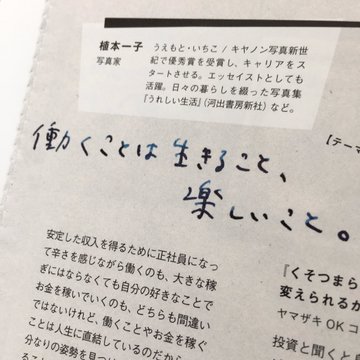 植本一子 うえもと・いちこ / キヤノン写真新世
写真家 紀で優秀賞を受賞し、キャリアをス
タートさせる。エッセイストとしても
活躍。日々の暮らしを綴った写真集
『うれしい生活』(河出書房新社)など。
働くことは生きること、
楽しいこと。
【テーマ
安定した収入を得るために正社員になっ
て辛さを感じながら働くのも、大きな稼
ぎにはならなくても自分の好きなことで
お金を稼いでいくのも、どちらも間違い
ではないけれど、働くことやお金を稼ぐ
ことは人生に直結しているのだから
分なりの姿勢を見つけ
『くそつまら
変えられるか
ヤマザキOKコ
投資と聞くと